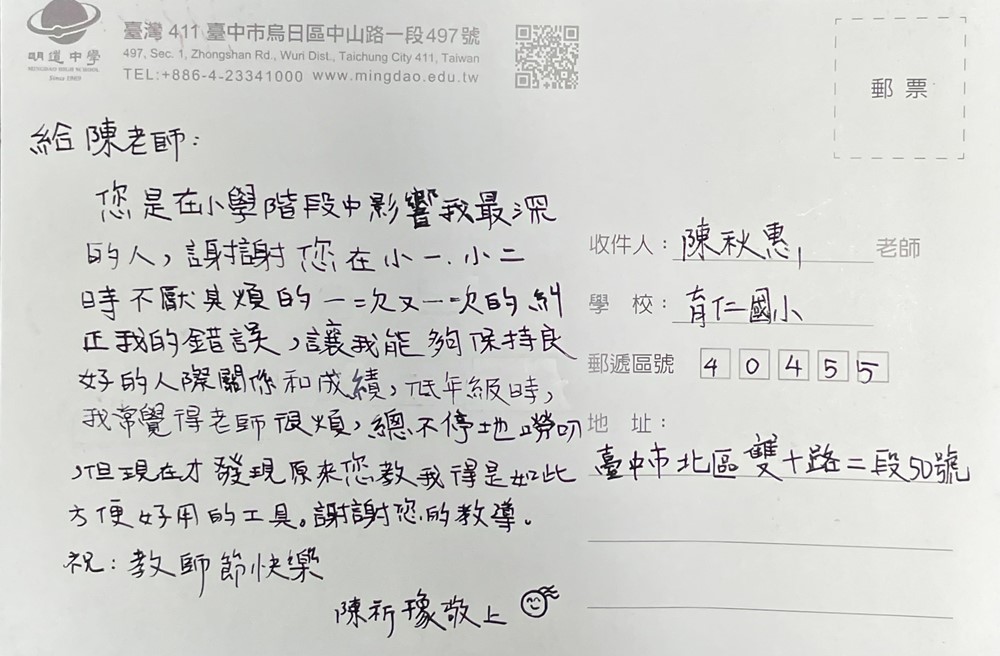 明道中學
MINGDAO HIGH SCHOOL
Since 1969
臺灣 411 臺中市烏日區中山路一段497號
497, Sec. 1, Zhongshan Rd., Wuri Dist., Taichung City 411, Taiwan
TEL:+886-4-23341000 www.mingdao.edu.tw
郵票
給陳老師:
您是在小學階段中影響我最深
的人,謝謝您在小一、小二
時不厭其煩的一次又一次的糾
正我的錯誤,讓我能夠保持良
好的人際關係和成績,低年級時,
我常覺得老師很煩,總不停地嘮叨
,但現在才發現原來您教我得是如此
方便好用的工具。謝謝您的教導。
祝:教師節快樂
陳祈豫敬上
收件人: 陳秋惠 老師
學 校: 育仁國小
郵遞區號 40455
地 址:
臺中市北區雙十路二段50號